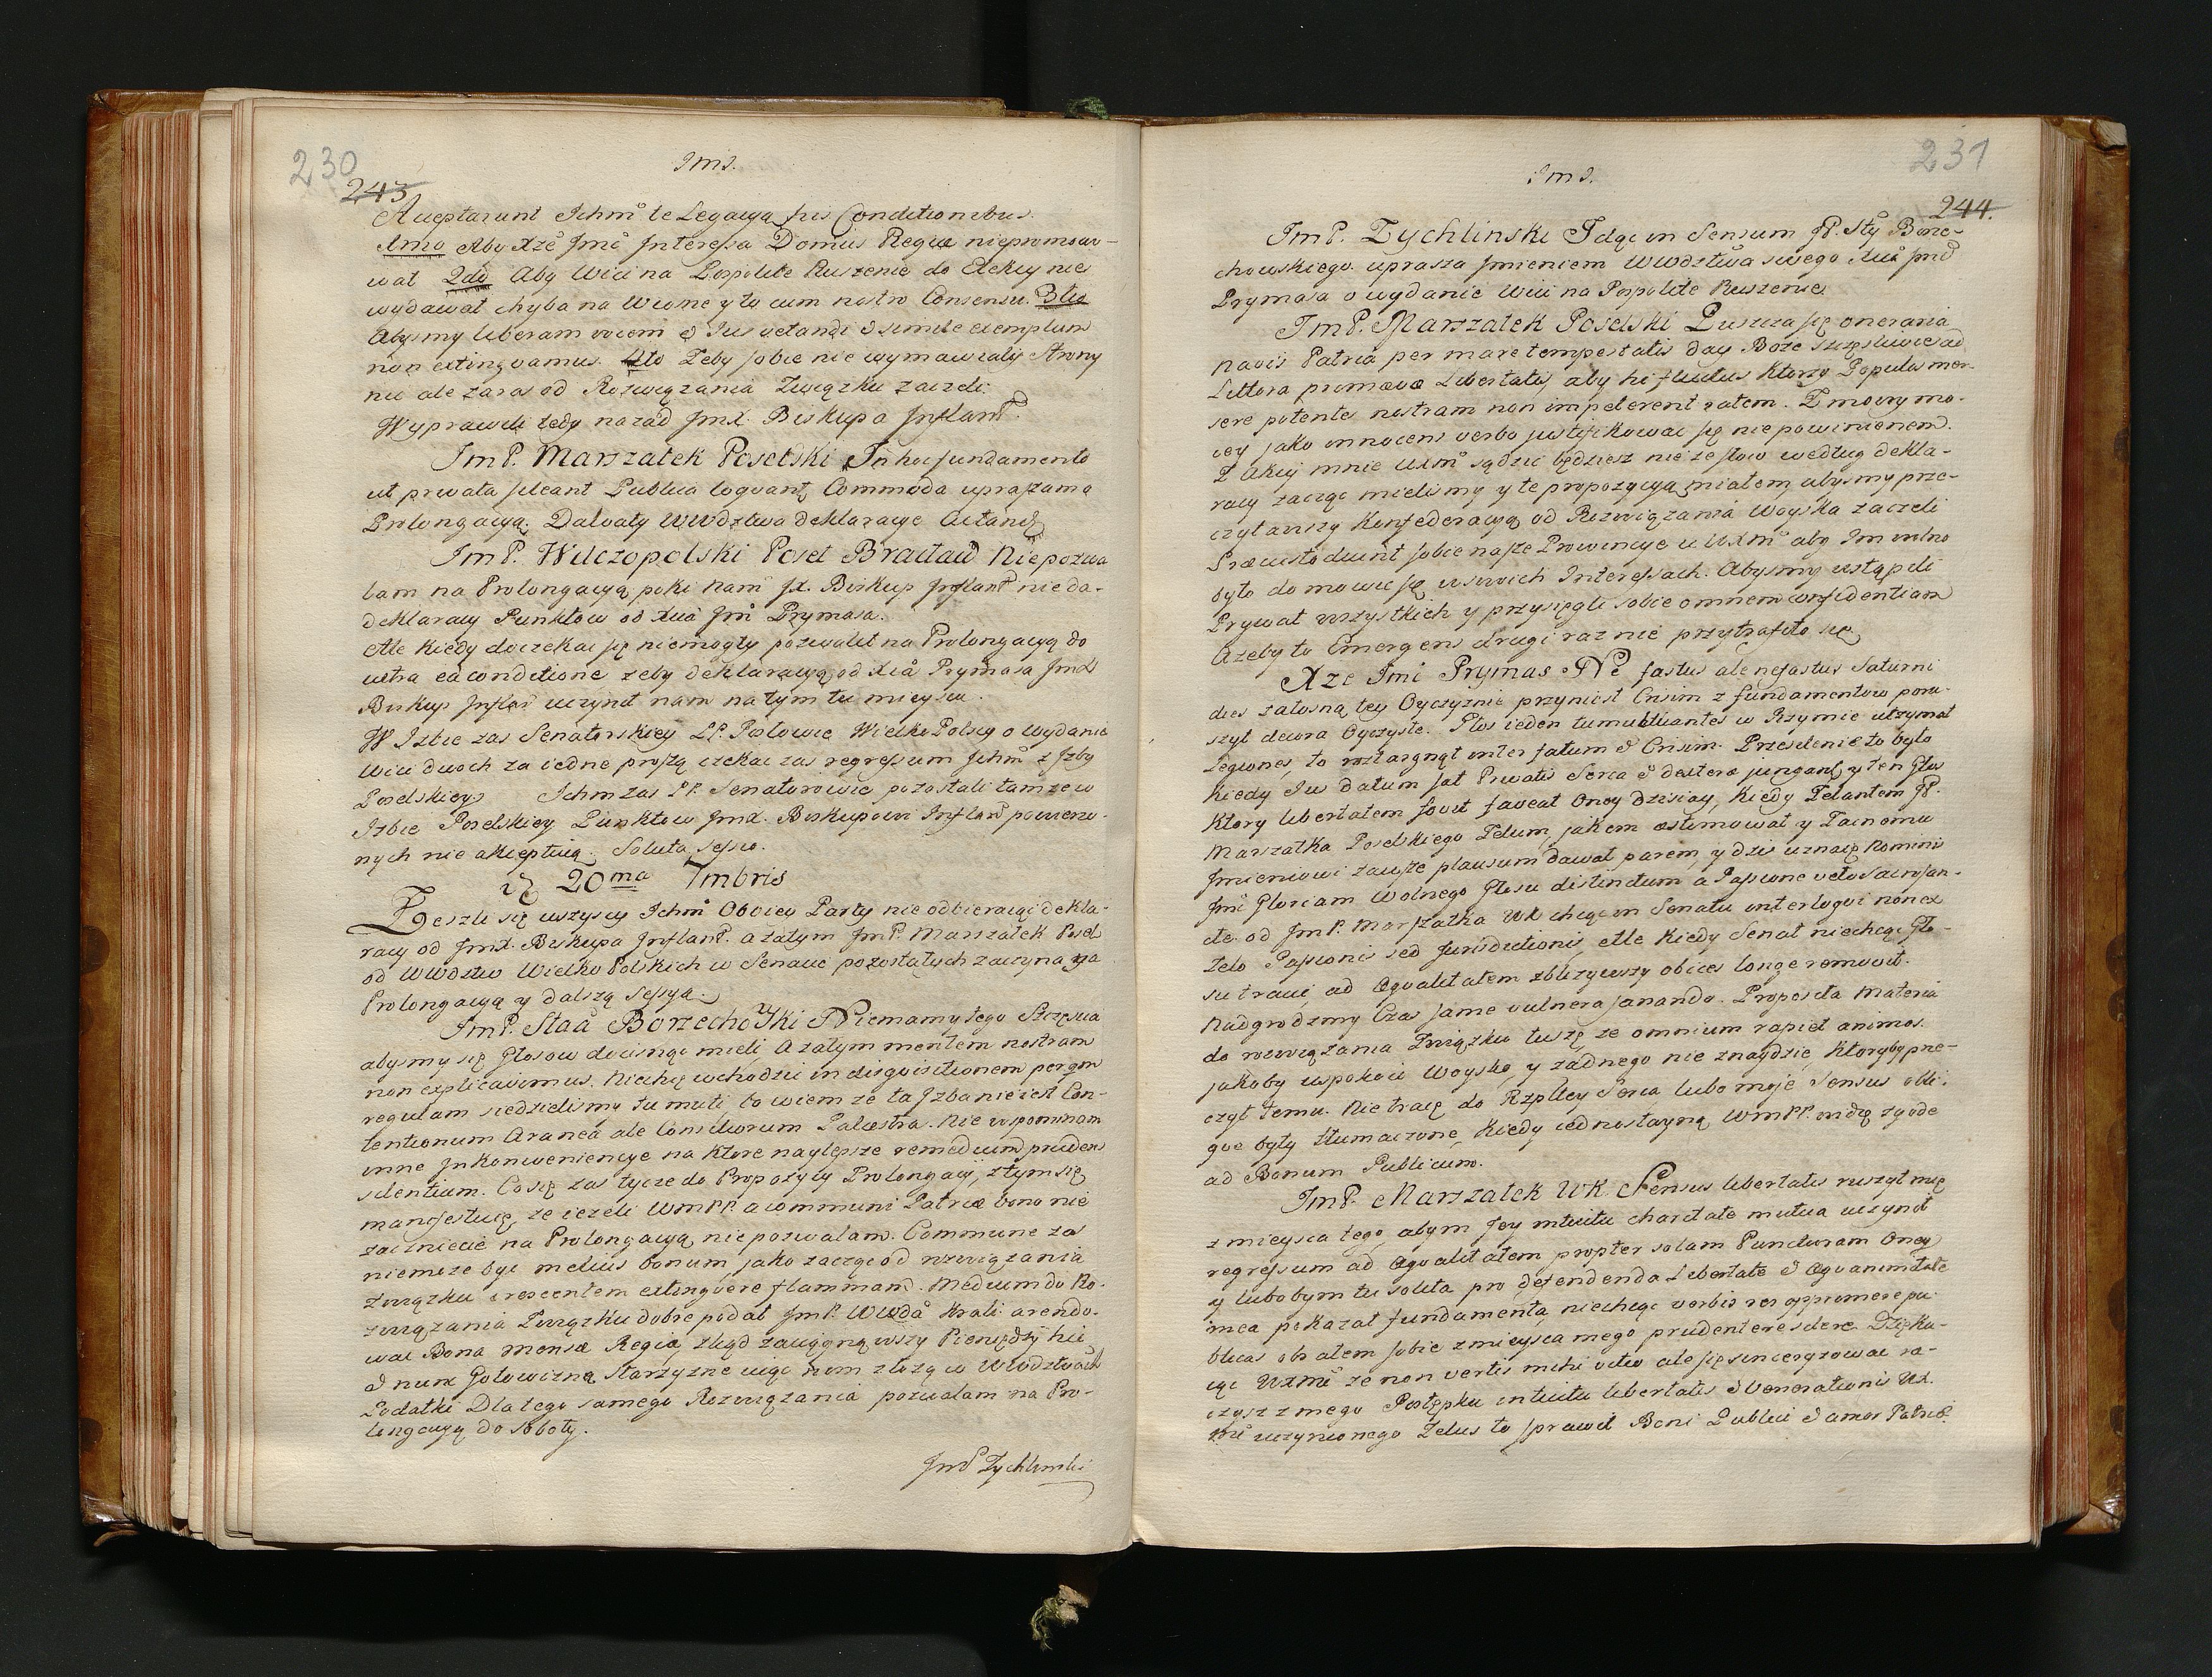 230
243
JmJ.
Aceptarunt Ichmć te Legacyą his Conditionibus.
1mo Aby Xże Jmć Interessa Domus Regiæ niepromow-
wał 2do Aby Wici na Pospolite Ruszenie do Elekcyi nie
wydawał chyba na Wiosnę y to cum nostro Consensu. 3tio
Abysmy liberam vocem & Jus vetandi & simile exemplum
non extingvamus. 4to Żeby sobie nie wymawiały Strony
nic ale zaras od Rozwiązania Związku zaczeli.
Wyprawili tedy nazad JmX. Biskupa Inflant.
JmP. Marszałek Poselski In hoc fundamento
ut privata sileant Publica loqvant Commoda upraszam o
Prolongacyą. Dalwały WWdztwa deklaracye
JmP. Wilczopolski Poseł Bracław Niepozwa
lam na Prolongacyą poki nam JX. Biskup Inflant nie da-
deklaracyi Punktow od Xcia Jmci Prymasa.
Ale kiedy doczekac się niemogły pozwolił na Prolongacyą do
jutra ea conditione zeby deklaracyą od Xcia Prymasa JmX
Biskup Inflan uczynił nam na tym tu mieyscu.
W Izbie zas Senatorskiey PP. Posłowie WielkoPolscy o wydanie
Wici dwoch za iedne proszą czekaiąc zas regressum Ichmć z Izby
Poselskiey. Ichm zas PP. Senatorowie pozostali tamze w
Izbie Poselskiey Punktow JmX. Biskupowi Inflan powierzo-
nych nie akceptuią. Soluta sessio.
20ma 7mbris
Zeszli się wszyscy Ichmć Obviey Party nie odbieraiąc dekla-
racyi od JmX. Biskupa Inflant. a zatym JmP. Marszałek Posel
od WWdztw WielkoPolskich w Senacie pozostałych zaczyna
Prolongacyą y dalszą Sessyą.
JmP. Staā Borzechowski Niemamy tego Szczęscia
abysmy się Głosow docisnąc mieli, A zatym mentem nostram
non explicavimus. Niechcę wchodzic in disqvisitionem per qvm
regulam siedzielismy tu muti, bo wiem ze ta Izba nie iest Con-
tentionum Aranea ale Consiliorum Palæstra. Nie wspominam
inne Inkonweniencye na ktore naylepsze remedium prudens
silentium. Co się zas tycze do Propozycyi Prolongacyi, z tym się
manifestuię, ze iezeli WmPP. a communi Patriæ bono nie
zaczniecie na Prolongacyą niepozwalam. Commune zas
niemoze byc melius bonum, jako zacząc od rozwiązania
związku crescentem extingvere flammam. Medium do Ro-
związania Związku dobre podał JmP. WWdā Kali: arendo-
wac Bona mensæ Regiæ, zkąd zaciągnąwszy Pieniędzy hic
& nunc Gotowizną Starzyzne więc nam złożą w WWdztwach
Podatki Dla tego samego Rozwiązania pozwalam na Pro-
longacyą do soboty.
JmP Zychlinski
231
244.
JmJ.
JmP. Zychlinski Idąc in Sensum JP. Stty Borze-
chowskiego. uprasza Imieniem WWdztwa swego Xcia Jmć
Prymasa o wydanie Wici na Pospolite Ruszenie.
JmP. Marszałek Poselski Puszcza się oneraria
navis Patria per mare tempestatis day Boze szczęsliwie ad
Littora primæva Libertatis, aby hi fluctus ktorzy Populos mer-
gere potentes nostram non impeterent ratem. Z mowy mo-
iey jako innocens verbo justifikowac się nie powinienem.
Z akcyi mnie WXmć sądzic będziesz nie ze słow według dekla-
racyi zacząc mielismy y te propozycyą miałem, abysmy prze-
czytawszy Konfederacyą od Rozwiązania Woyska zaczeli
Præcustodiunt sobie nasze Prowincye u WXmć aby Im wolno
było domowic się w swoich Interessach. Abysmy ustąpili
Prywat wszystkich y przysięgli sobie omnem confidentiam
Azeby to Emergens drugi raz nie przytrafiło się.
Xze Jmć Prymas Ne fastus ale nefastus Saturni
dies załosną tey Oyczyznie przyniosł Crisim z fundamentow poru-
szył decora Oyczyste. Głos ieden tumultuantes w Rzymie utrzymał
Legiones, to roztargnął inter fatum & Crisim. Przesilenie to było
Kiedy Jus datum sat Privatis Serca & dextera jungant, y ten Głos
ktory libertatem fovit faveat Oney dzisiay, Kiedy Zelantem JP.
Marszałka Poselskiego Zelum, jakem æstimował y Zacnemu
Imieniowi zawsze plausum dawał parem, y dzis uznaię Nominis
Jmć Gloriam Wolnego Głosu distinctum a Passione veto Sacrosan-
cte. od JmP. Marszałka WK chcąc in Senatu interloqvi non ex
Zelo Passionis sed Jurisdictionis, Ale kiedy Senat niechcąc Gło-
su traci, ad Æqvalitatem zblizywszy obices longe removit.
Nadgrodzmy Czas jame vulnera sanando. Proposita Materia
do rozwiązania Związku tuszę ze omnium rapiet animos.
jakoby uspokoic Woysko, y zadnego nie znaydzie, ktoryby prze-
czył temu. Nie tracę do Rzpltey Serca lubo moje Sensus obli-
que były tłumaczone, Kiedy iednostayną WmPP. widzę zgode
ad Bonum Publicum.
JmP. Marszałek WK. Sensus libertatis ruszył mię
z mieysca tego, abym Jey intuitu charitate mutua uczynił
regressum ad Æqvalitatem propter solam Puncturam Oney
y lubobym tu solita pro defendenda Libertate & Æqvanimitate
mea pokazał fundamenta, niechcąc verbis res exprimere pu-
blicas obrałem sobie z mieysca mego prudenter cedere. Dzięku-
iąc WXmć ze non vertis mihi vitio ale się sincerizowac ra-
czysz z mego Postępku intuitu libertatis & Venerationis WX.
Jmć uczynionego Zelus to sprawił Boni Publici & amor Patriæ.